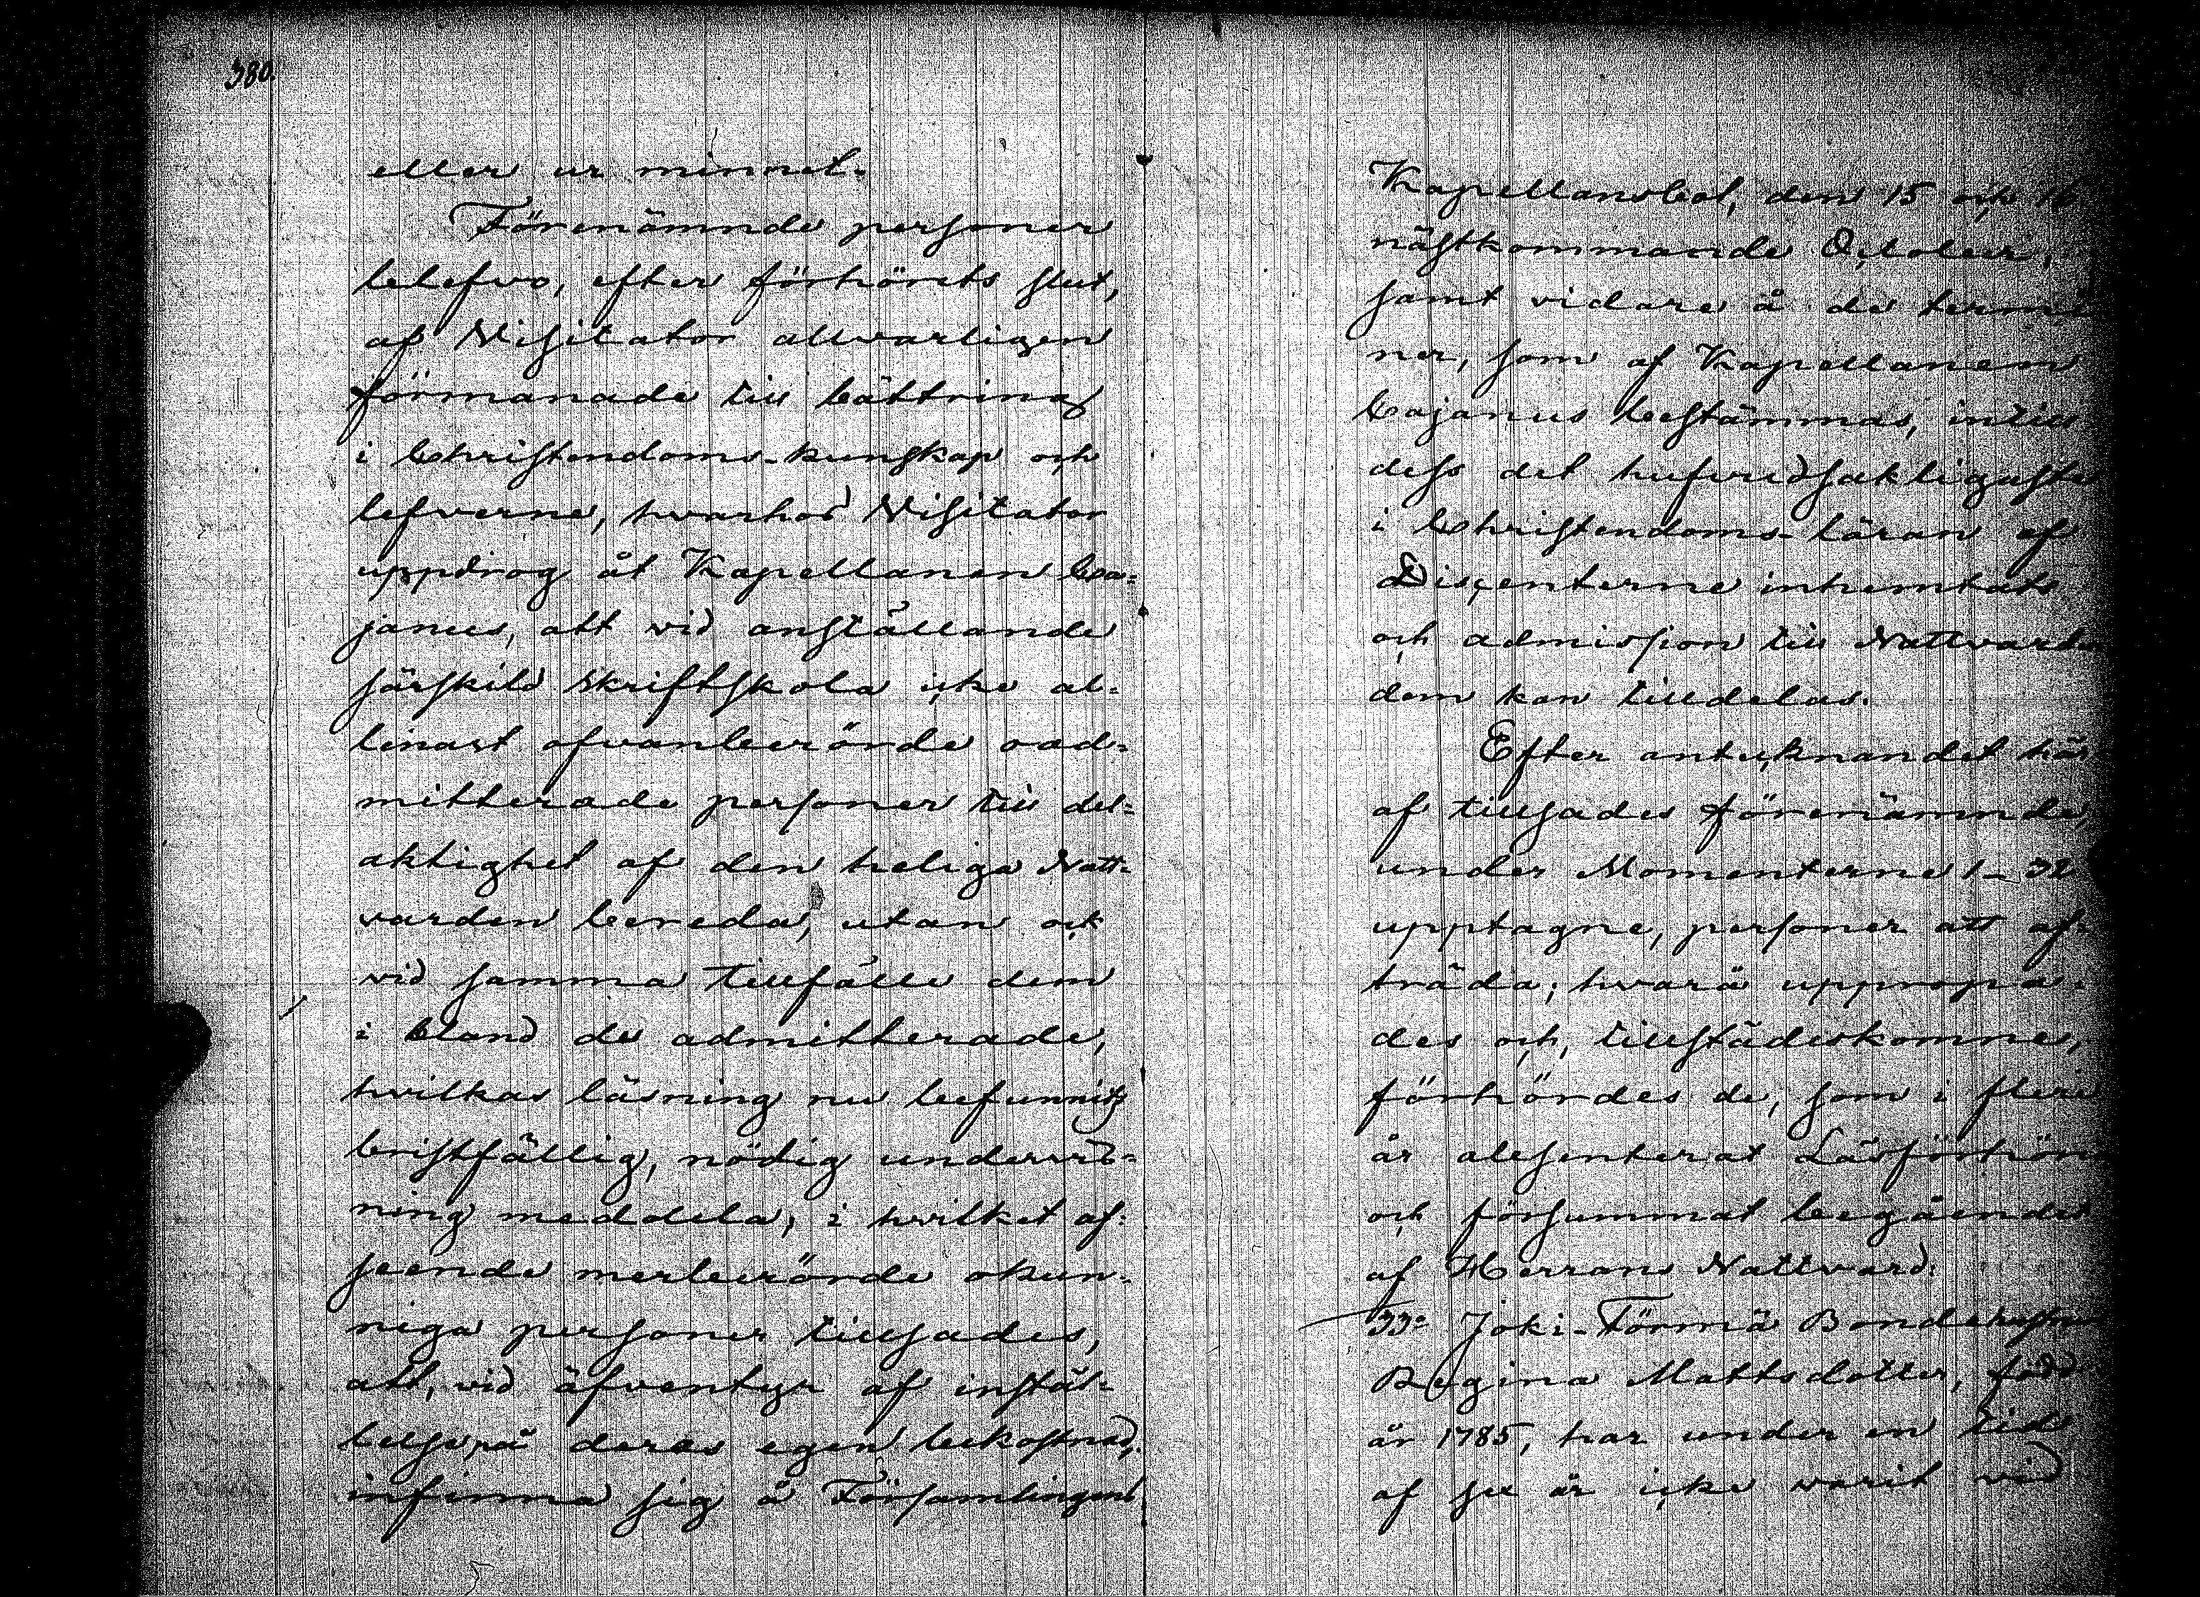 380.
eller ur minnet.
Förenämnde personer
blefvo, efter förhörets slut,
af Visitator allvarligen
förmanade till bättring
i Christendoms-kunskap och
lefverne, hvarhos Visitator
uppdrog åt Kapellanen Ca=
janus, att vid anställande
särskild skriftskola icke al=
lenast ofvanberörde oad=
mitterade personer till del=
aktighet af den heliga Natt=
varden bereda, utan ock
vid samma tillfälle dem
i bland de admitterade,
hvilkas läsning nu befunnits
bristfällig, nödig undervis=
ning meddela, i hvilket af=
seende merberörde okun=
niga personer tillsades,
att, vid äfventyr af instäl=
lelse på deras egen bekostnad,
infinna sig å Församlingens
Kapellansbol, den 15 och 16
nästkommande October,
samt vidare å de termi
ner, som af Kapellanem
Cajanus bestämmas, intill
dess det hufvudsakligaste
i Christendoms-läran af
Discenterne inhemtats
och admission till Nattvard
dem kan tilldelas.
Efter antecknandet här
af tillsades förenämnde,
under Momenterne 1-32
upptagne, personer att af=
träda; hvarå uppropa=
des och, tillstädeskomne,
förhördes de, som i flere
år absenterat Läsförhören
och försummat begåendet
af Herrans Nattvard.
33= Joki-Törmä Bondehustru
Regina Mattsdotter, född
år 1785, har under en tid
af sex år icke varit vid